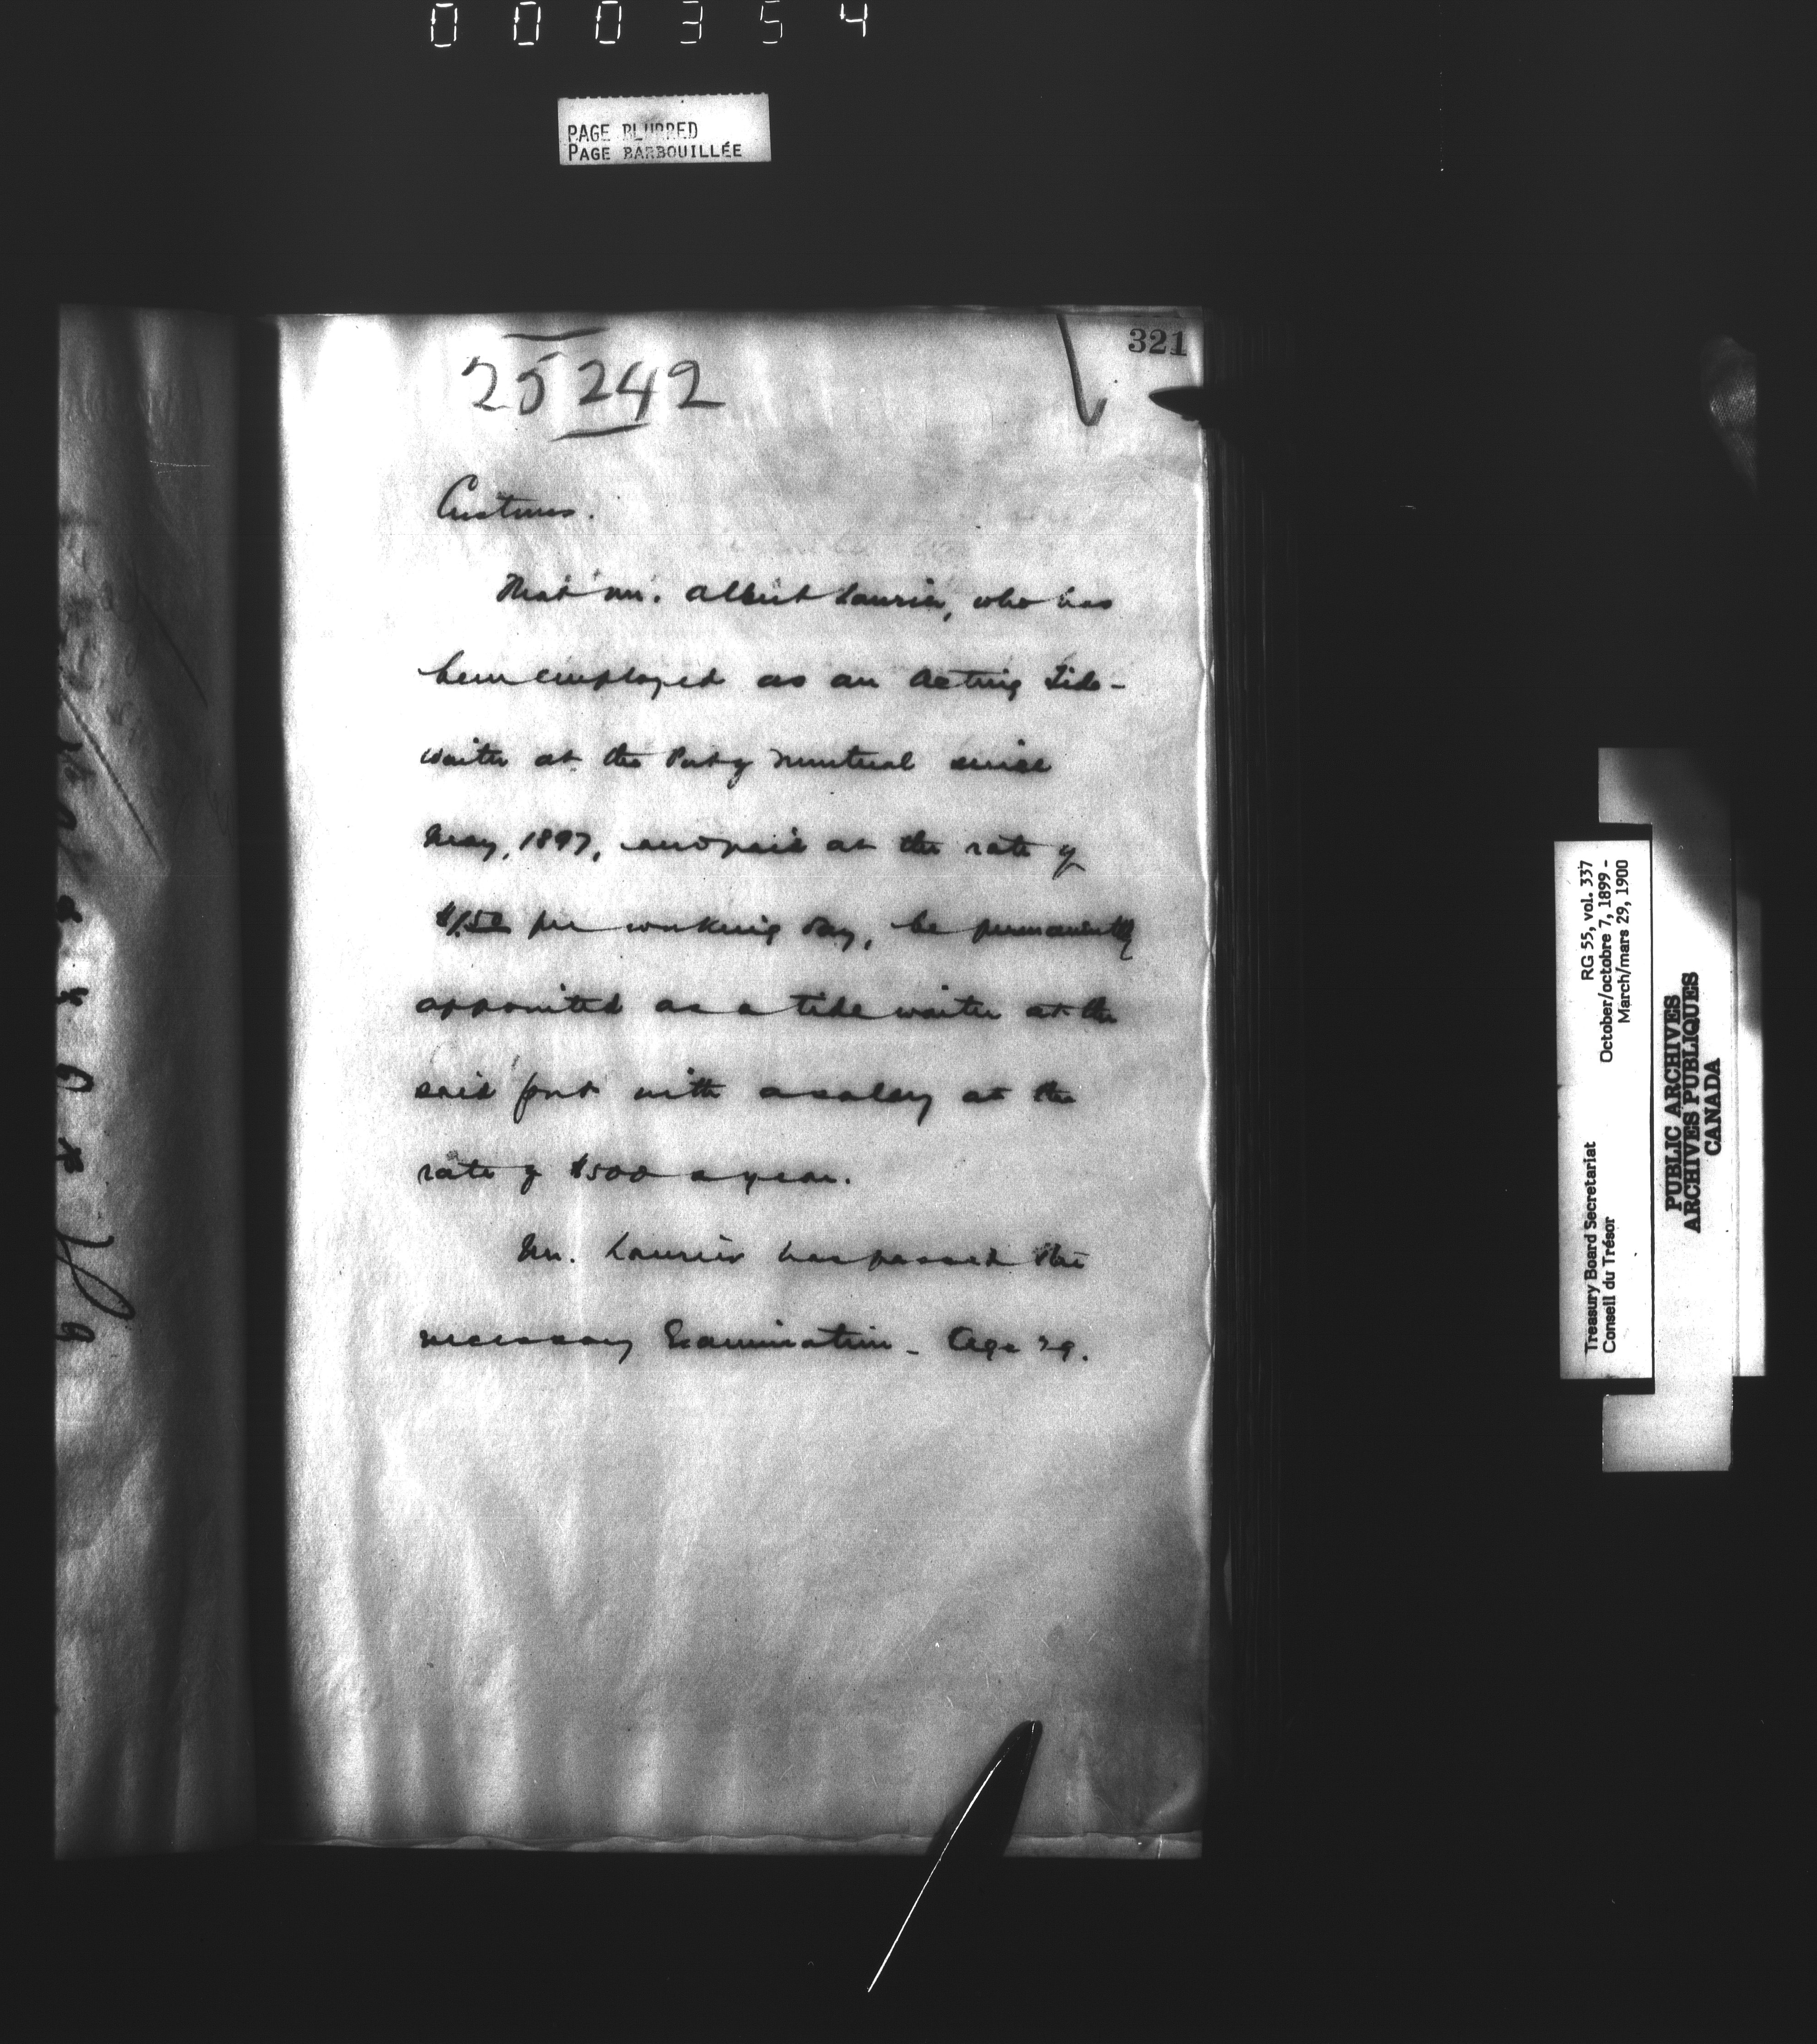 000354
PAGE BLURRED
PAGE BARBOUILLÉE
321
25242
Customs.
That Mr. Albert Laurier, who has
been employed as an Acting Tide-
waiter at the Port of Montreal since
May, 1897, and paid at the rate of
$1.50 per working day, be permanently
appointed as a tide waiter at the
said port with a salary at the
rate of $500 a year.
Mr. Laurier has passed the
necessary Examination - Age 29.
Treasury Board Secretariat RG 55, vol. 337
Conseil du Trésor October/octobre 7, 1899 -
March/mars 29, 1900
PUBLIC ARCHIVES
ARCHIVES PUBLIQUES
CANADA